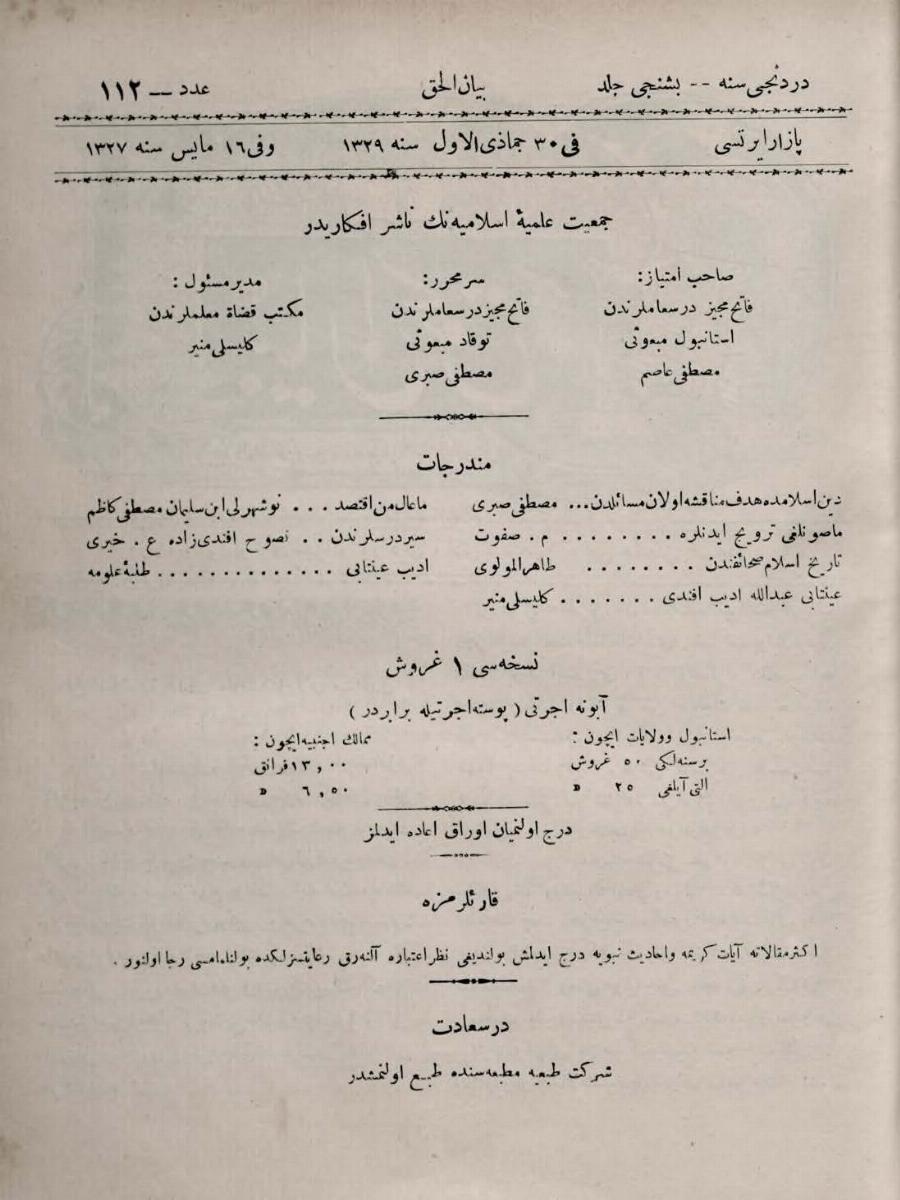 دردنجی سنه -- بشنجی جلد
بیان الحق
عدد — ١١٢
پازار ایرتسی
فی ٣٠ جماذی الاول سنه ١٣٢٩
وفی ١٦ مایس سنه ١٣٢٧
جمعیت علمیۀ اسلامیه‌نك ناشر افكاریدر
صاحب امتیاز :
فاتح مجیز درسعاملرندن
استانبول مبعوثی
مصطفی عاصم
سر محرر :
فاتح مجیز درسعاملرندن
توقاد مبعوثی
مصطفی صبری
مدیر مسئول :
مكتب قضاة معلملرندن
كلیسلی منیر
مندرجات
دین اسلامده هدف مناقشه اولان مسائلدن ... مصطفی صبری
ماصونلغی ترویج ایدنلره . . . . . . . . م . صفوت
تاریخ اسلام صحائفندن . . . . . . . . طاهر المولوی
عینتابی عبدالله ادیب افندی . . . . . . . كلیسلی منیر
ماعال من اقتصد . . . نوشهرلی ابن سلیمان مصطفی كاظم
سیر درسلرندن . . نصوح افندی زاده ع . خیری
ادیب عینتابی . . . . . . . . . . . . . طلبۀ علومه
نسخه‌سی ١ غروش
آبونه اجرتی ( پوسته اجرتیله برابردر )
استانبول وولایات ایچون :
برسنه‌لكی ٥٠ غروش
التی آیلغی ٢٥ »
ممالك اجنبیه ایچون :
١٣,٠٠ فرانق
٦,٥٠ »
درج اولنمیان اوراق اعاده ایدلمز
قارئلرمزه
اكثر مقالاته آیات كریمه واحادیث نبویه درج ایدلمش بولندیغی نظر اعتباره آلنه‌رق رعایتسزلكده بولنامامسی رجا اولنور .
درسعادت
شركت طبعیه مطبعه‌سنده طبع اولنمشدر